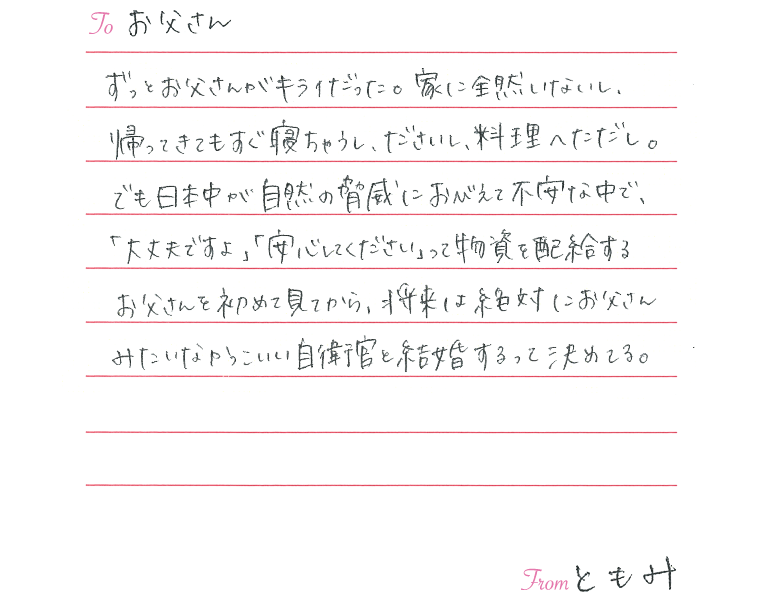 To お父さん
ずっとお父さんがキライだった。家に全然いないし、
帰ってきてもすぐ寝ちゃうし、ださいし、料理へただし。
でも日本中が自然の脅威におびえて不安な中で、
「大丈夫ですよ」「安心してください」って物資を配給する
お父さんを初めて見てから、将来は絶対にお父さん
みたいなかっこいい自衛官と結婚するって決めてる。
From ともみ